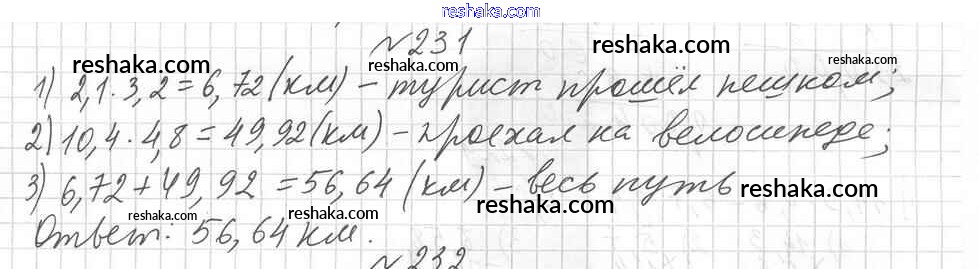 reshaka.com
№231
reshaka.com
reshaka.com
1) 2,1·3,2=6,72(км) – турист прошёл пешком;
2) 10,4·4,8=49,92(км) – проехал на велосипеде;
3) 6,72+49,92=56,64(км) – весь путь
reshaka.com
reshaka.com
reshaka.com
reshaka.com
Ответ: 56,64 км.
№232